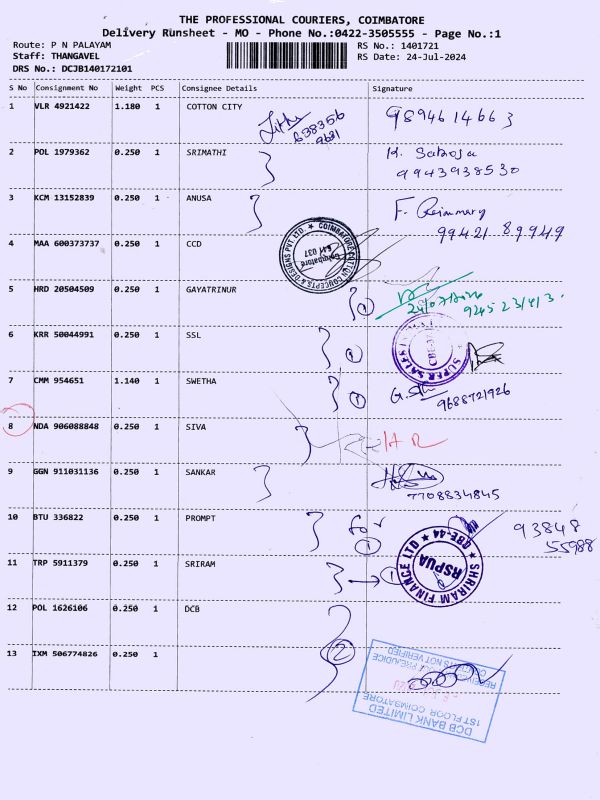 THE PROFESSIONAL COURIERS, COIMBATORE
Delivery Runsheet - MO - Phone No.:0422-3505555 - Page No.:1
Route: P N PALAYAM RS No.: 1401721
Staff: THANGAVEL RS Date: 24-Jul-2024
DRS No.: DCJB140172101
S No Consignment No Weight PCS Consignee Details Signature
1 VLR 4921422 1.180 1 COTTON CITY 9894614663
638356
9681
2 POL 1979362 0.250 1 SRIMATHI K. Saroja
9943938530
3 KCM 13152839 0.250 1 ANUSA
99421 89949
4 MAA 600373737 0.250 1 CCD
COIMBATORE COTTON CONCEPTS & DESIGNS PVT LTD.
Coimbatore
641 037
5 HRD 20504509 0.250 1 GAYATRINUR 1
6 KRR 50044991 0.250 1 SSL 1
SUPER SALES
7 CMM 954651 1.140 1 SWETHA 1
9688721926
8 NDA 906088848 0.250 1 SIVA
9 GGN 911031136 0.250 1 SANKAR
7708834845
10 BTU 336822 0.250 1 PROMPT for 93848
1 55988
11 TRP 5911379 0.250 1 SRIRAM 1
SHRIRAM FINANCE LTD
RSPUA
12 POL 1626106 0.250 1 DCB
2
13 IXM 506774826 0.250 1
DCB BANK LIMITED
1ST FLOOR COIMBATORE
RECEIVED WITHOUT PREJUDICE
CONTENTS NOT VERIFIED